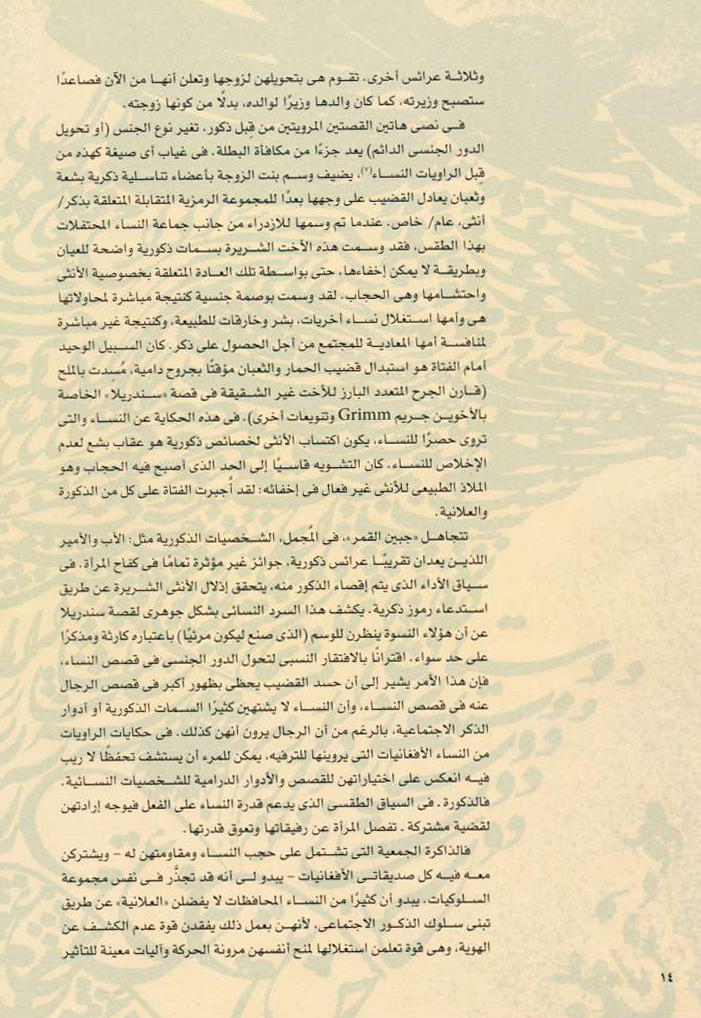 وثلاثة عرائس أخرى. تقوم هى بتحويلهن لزوجها وتعلن أنها من الآن فصاعدًا
ستصبح وزيرته، كما كان والدها وزيرًا لوالده، بدلًا من كونها زوجته.
فى نصى هاتين القصتين المرويتين من قِبل ذكور، تغير نوع الجنس (أو تحويل
الدور الجنسى الدائم) يعد جزءًا من مكافأة البطلة. فى غياب أى صيغة كهذه من
قِبل الراويات النساء(٧)، يضيف وسم بنت الزوجة بأعضاء تناسلية ذكرية بشعة
وثعبان يعادل القضيب على وجهها بعدًا للمجموعة الرمزية المتقابلة المتعلقة بذكر/
أنثى، عام/ خاص. عندما تم وسمها للازدراء من جانب جماعة النساء المحتفلات
بهذا الطقس، فقد وسمت هذه الأخت الشريرة بسمات ذكورية واضحة للعيان
وبطريقة لا يمكن إخفاءها، حتى بواسطة تلك العادة المتعلقة بخصوصية الأنثى
واحتشامها وهى الحجاب. لقد وسمت بوصمة جنسية كنتيجة مباشرة لمحاولاتها
هى وأمها استغلال نساء أخريات، بشر وخارقات للطبيعة، وكنتيجة غير مباشرة
لمنافسة أمها المعادية للمجتمع من أجل الحصول على ذكر. كان السبيل الوحيد
أمام الفتاة هو استبدال قضيب الحمار والثعبان مؤقتًا بجروح دامية، مُسِدت بالملح
(قارن الجرح المتعدد البارز للأخت غير الشقيقة فى قصة «سندريلا» الخاصة
بالأخوين جريم Grimm وتنويعات أخرى). فى هذه الحكاية عن النساء والتى
تروى حصرًا للنساء، يكون اكتساب الأنثى لخصائص ذكورية هو عقاب بشع لعدم
الإخلاص للنساء. كان التشويه قاسيًا إلى الحد الذى أصبح فيه الحجاب وهو
الملاذ الطبيعى للأنثى غير فعال فى إخفائه: لقد أُجبرت الفتاة على كل من الذكورة
والعلانية.
تتجاهل «جبين القمر»، فى المُجمل، الشخصيات الذكورية مثل: الأب والأمير
اللذين يعدان تقريبًا عرائس ذكورية، جوائز غير مؤثرة تمامًا فى كفاح المرأة. فى
سياق الأداء الذى يتم إقصاء الذكور منه، يتحقق إذلال الأنثى الشريرة عن طريق
استدعاء رموز ذكرية. يكشف هذا السرد النسائى بشكل جوهرى لقصة سندريلا
عن أن هؤلاء النسوة ينظرن للوسم (الذى صنع ليكون مرئيًا) باعتباره كارثة ومذكرًا
على حد سواء. اقترانًا بالافتقار النسبى لتحول الدور الجنسى فى قصص النساء،
فإن هذا الأمر يشير إلى أن حسد القضيب يحظى بظهور أكبر فى قصص الرجال
عنه فى قصص النساء، وأن النساء لا يشتهين كثيرًا السمات الذكورية أو أدوار
الذكر الاجتماعية، بالرغم من أن الرجال يرون أنهن كذلك. فى حكايات الراويات
من النساء الأفغانيات التى يروينها للترفيه، يمكن للمرء أن يستشف تحفظًا لا ريب
فيه انعكس على اختياراتهن للقصص والأدوار الدرامية للشخصيات النسائية.
فالذكورة ـ فى السياق الطقسى الذى يدعم قدرة النساء على الفعل فيوجه إرادتهن
لقضية مشتركة ـ تفصل المرأة عن رفيقاتها وتعوق قدرتها.
فالذاكرة الجمعية التى تشتمل على حجب النساء ومقاومتهن له – ويشتركن
معه فيه كل صديقاتى الأفغانيات – يبدو لى أنه قد تجذَّر فى نفس مجموعة
السلوكيات. يبدو أن كثيرًا من النساء المحافظات لا يفضلن «العلانية» عن طريق
تبنى سلوك الذكور الاجتماعى، لأنهن بعمل ذلك يفقدن قوة عدم الكشف عن
الهوية، وهى قوة تعلمن استغلالها لمنح أنفسهن مرونة الحركة وآليات معينة للتأثير
١٤